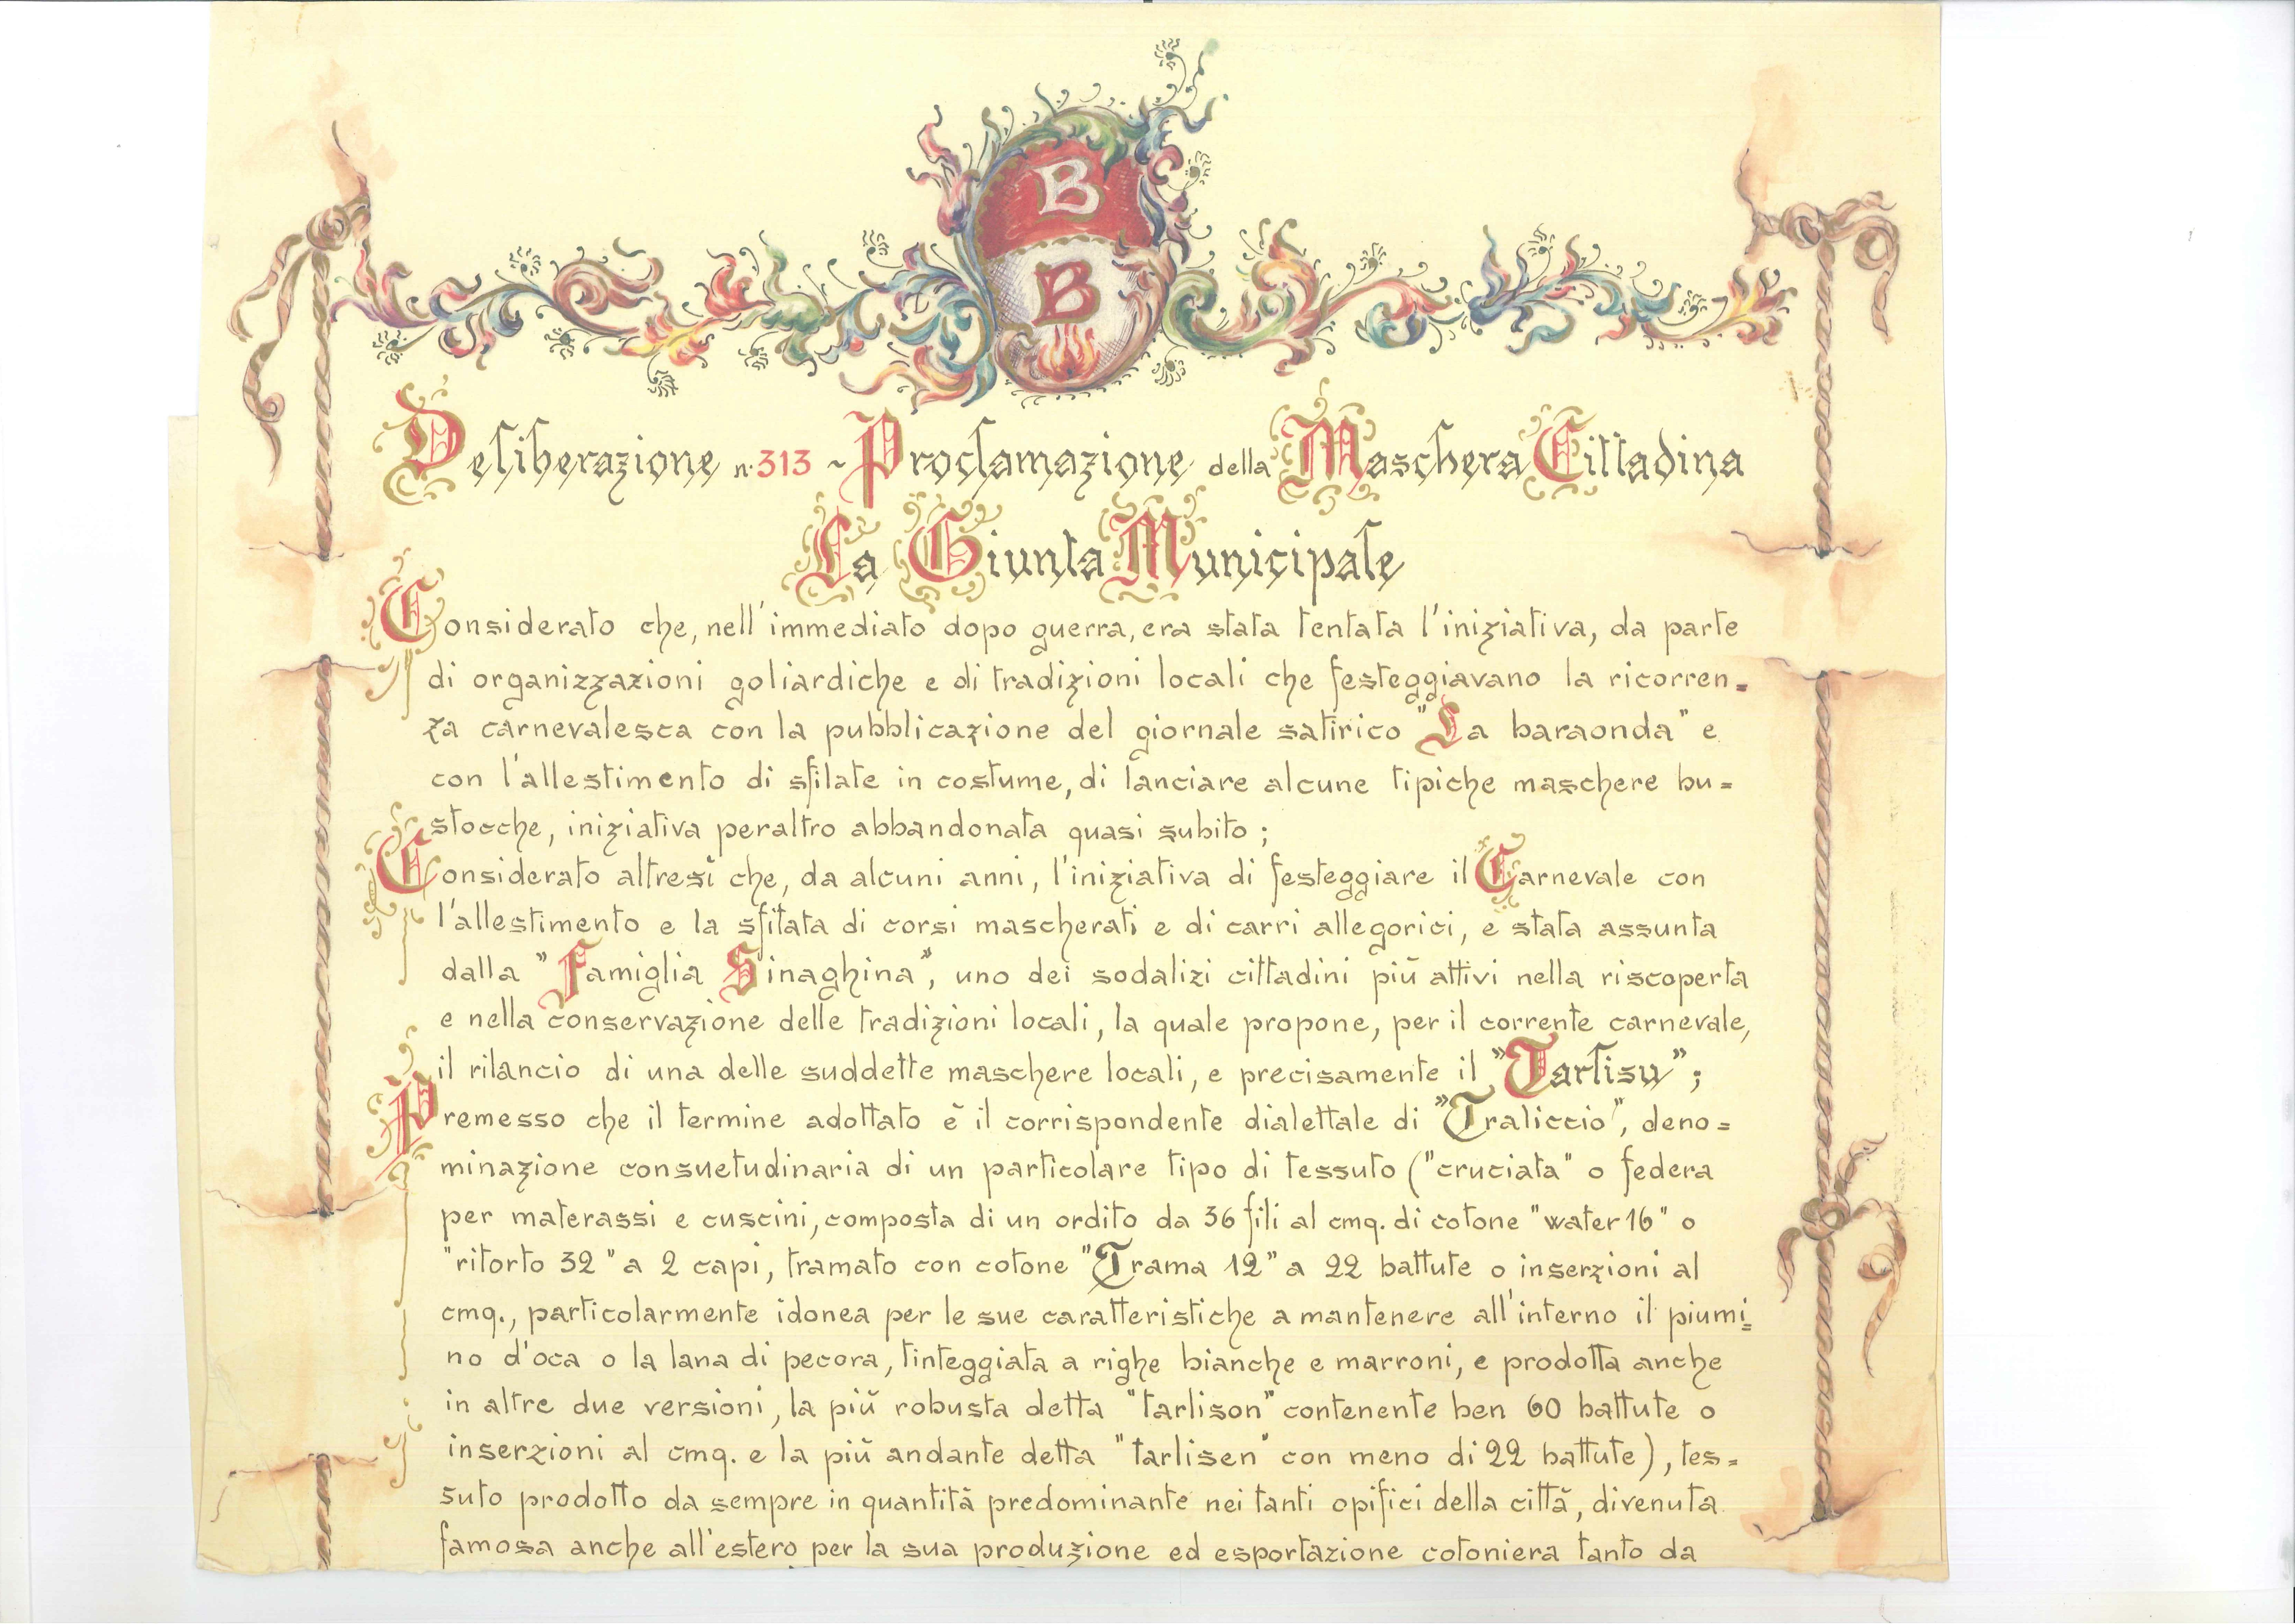 B
B
Deliberazione n. 313 ~ Proclamazione della Maschera Cittadina
La Giunta Municipale
Considerato che, nell'immediato dopo guerra, era stata tentata l'iniziativa, da parte
di organizzazioni goliardiche e di tradizioni locali che festeggiavano la ricorren=
za carnevalesca con la pubblicazione del giornale satirico "La baraonda" e
con l'allestimento di sfilate in costume, di lanciare alcune tipiche maschere bu=
stocche, iniziativa peraltro abbandonata quasi subito;
Considerato altresì che, da alcuni anni, l'iniziativa di festeggiare il Carnevale con
l'allestimento e la sfilata di corsi mascherati e di carri allegorici, e stata assunta
dalla "Famiglia Sinaghina", uno dei sodalizi cittadini più attivi nella riscoperta
e nella conservazione delle tradizioni locali, la quale propone, per il corrente carnevale,
il rilancio di una delle suddette maschere locali, e precisamente il "Tarlisu";
Premesso che il termine adottato è il corrispondente dialettale di "Traliccio", deno=
minazione consuetudinaria di un particolare tipo di tessuto ("cruciata" o federa
per materassi e cuscini, composta di un ordito da 36 fili al cmq. di cotone "water 16" o
"ritorto 32" a 2 capi, tramato con cotone "Trama 12" a 22 battute o inserzioni al
cmq., particolarmente idonea per le sue caratteristiche a mantenere all'interno il piumi=
no d'oca o la lana di pecora, tinteggiata a righe bianche e marroni, e prodotta anche
in altre due versioni, la più robusta detta "tarlison" contenente ben 60 battute o
inserzioni al cmq. e la più andante detta "tarlisen" con meno di 22 battute), tes=
suto prodotto da sempre in quantità predominante nei tanti opifici della città, divenuta
famosa anche all'estero per la sua produzione ed esportazione cotoniera tanto da